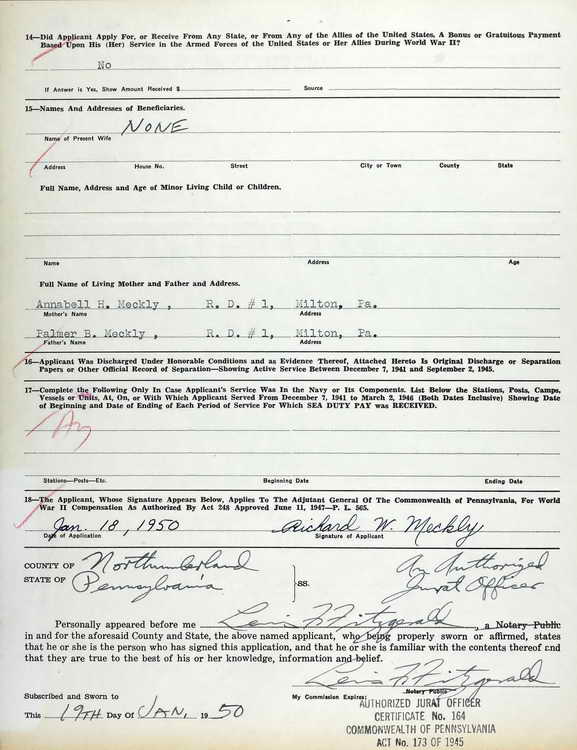 14—Did Applicant Apply For, or Receive From Any State, or From Any of the Allies of the United States, A Bonus or Gratuitous Payment
Based Upon His (Her) Service in the Armed Forces of the United States or Her Allies During World War II?
No
If Answer is Yes, Show Amount Received $ Source
15—Names And Addresses of Beneficiaries.
NONE
Name of Present Wife
Address House No. Street City or Town County State
Full Name, Address and Age of Minor Living Child or Children.
Name Address Age
Full Name of Living Mother and Father and Address.
Annabell H. Meckly , R. D. # 1, Milton, Pa.
Mother's Name Address
Palmer B. Meckly , R. D. # 1, Milton, Pa.
Father's Name Address
16—Applicant Was Discharged Under Honorable Conditions and as Evidence Thereof, Attached Hereto Is Original Discharge or Separation
Papers or Other Official Record of Separation—Showing Active Service Between December 7, 1941 and September 2, 1945.
17—Complete the Following Only In Case Applicant's Service Was In the Navy or Its Components. List Below the Stations, Posts, Camps,
Vessels or Units, At, On, or With Which Applicant Served From December 7, 1941 to March 2, 1946 (Both Dates Inclusive) Showing Date
of Beginning and Date of Ending of Each Period of Service For Which SEA DUTY PAY was RECEIVED.
Stations—Posts—Etc. Beginning Date Ending Date
18—The Applicant, Whose Signature Appears Below, Applies To The Adjutant General Of The Commonwealth of Pennsylvania, For World
War II Compensation As Authorized By Act 248 Approved June 11, 1947—P. L. 565.
Jan. 18, 1950 Richard W. Meckly
Date of Application Signature of Applicant
COUNTY OF Northumberland An Authorized
STATE OF Pennsylvania }SS. Jurat Officer
Personally appeared before me Lewis F. Fitzgerald, a Notary Public
in and for the aforesaid County and State, the above named applicant, who being properly sworn or affirmed, states
that he or she is the person who has signed this application, and that he or she is familiar with the contents thereof and
that they are true to the best of his or her knowledge, information and belief.
Lewis F. Fitzgerald
Notary Public
Subscribed and Sworn to My Commission Expires:
AUTHORIZED JURAT OFFICER
This 19TH Day Of JAN, 1950 CERTIFICATE No. 164
COMMONWEALTH OF PENNSYLVANIA
ACT No. 173 OF 1945